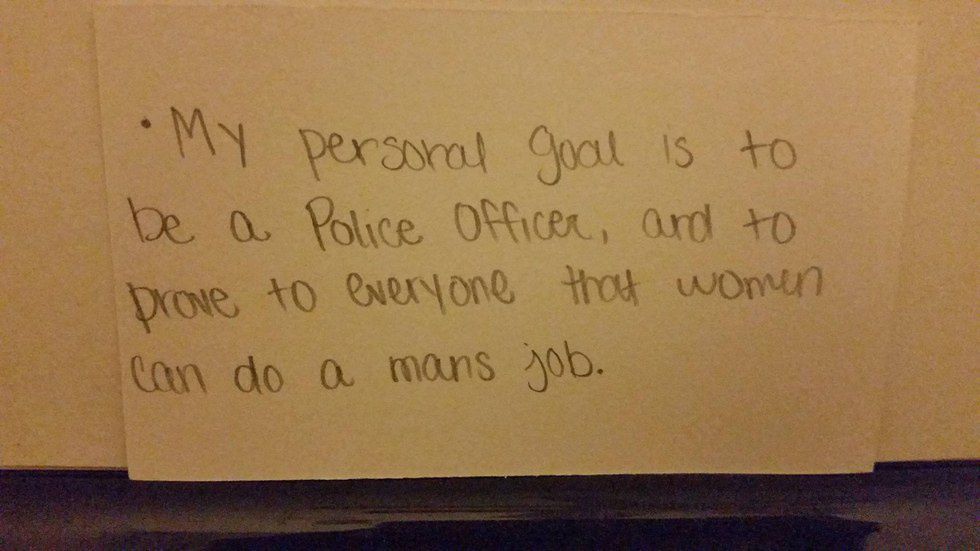 • My personal goal is to
be a Police Officer, and to
prove to everyone that women
can do a mans job.